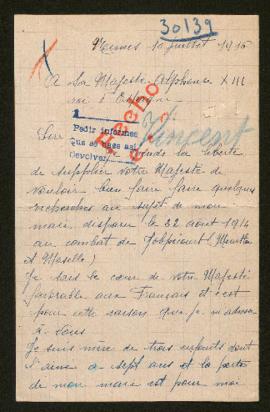 30139
Rennes 10 juillet 1915
A Sa Majesté Alphonse XIII
roi d'Espagne
Vincent
Pedir informes
Devolver
prends la liberté
de supplier votre Majesté de
vouloir bien faire faire quelques
recherches au sujet de mon
mari, disparu le 22 août 1914
au combat de (Meurthe
et Moselle)
Je sais le cœur de votre Majesté
favorable aux Français et c'est
pour cette raison que je m'adresse
à vous
Je suis mère de trois enfants dont
l'aîné a sept ans et la perte
de mon mari est pour moi